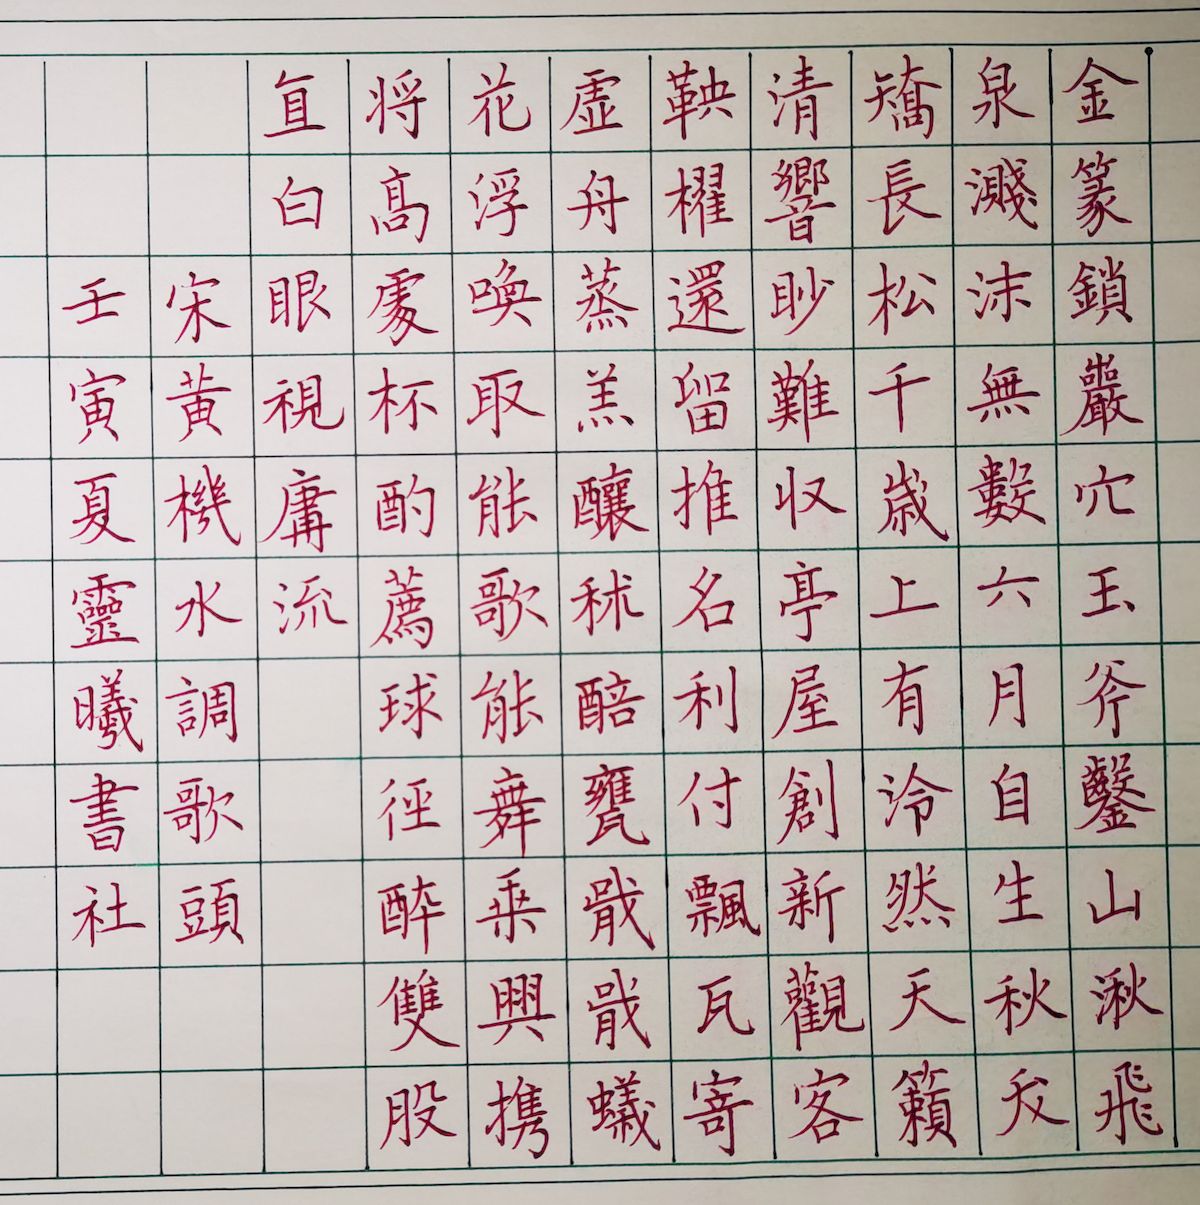 金篆鎖巖穴玉斧鑿山湫飛
泉濺沫無數六月自生秋夭
矯長松千歲上有泠然天籟
清響眇難収亭屋創新觀客
鞅櫂還留推名利付飄瓦寄
虛舟蒸羔釀秫醅甕戢戢蟻
花浮喚取能歌能舞乗興携
将髙處杯酌薦球徑醉雙股
直白眼視庸流
宋黃機水調歌頭
壬寅夏靈曦書社